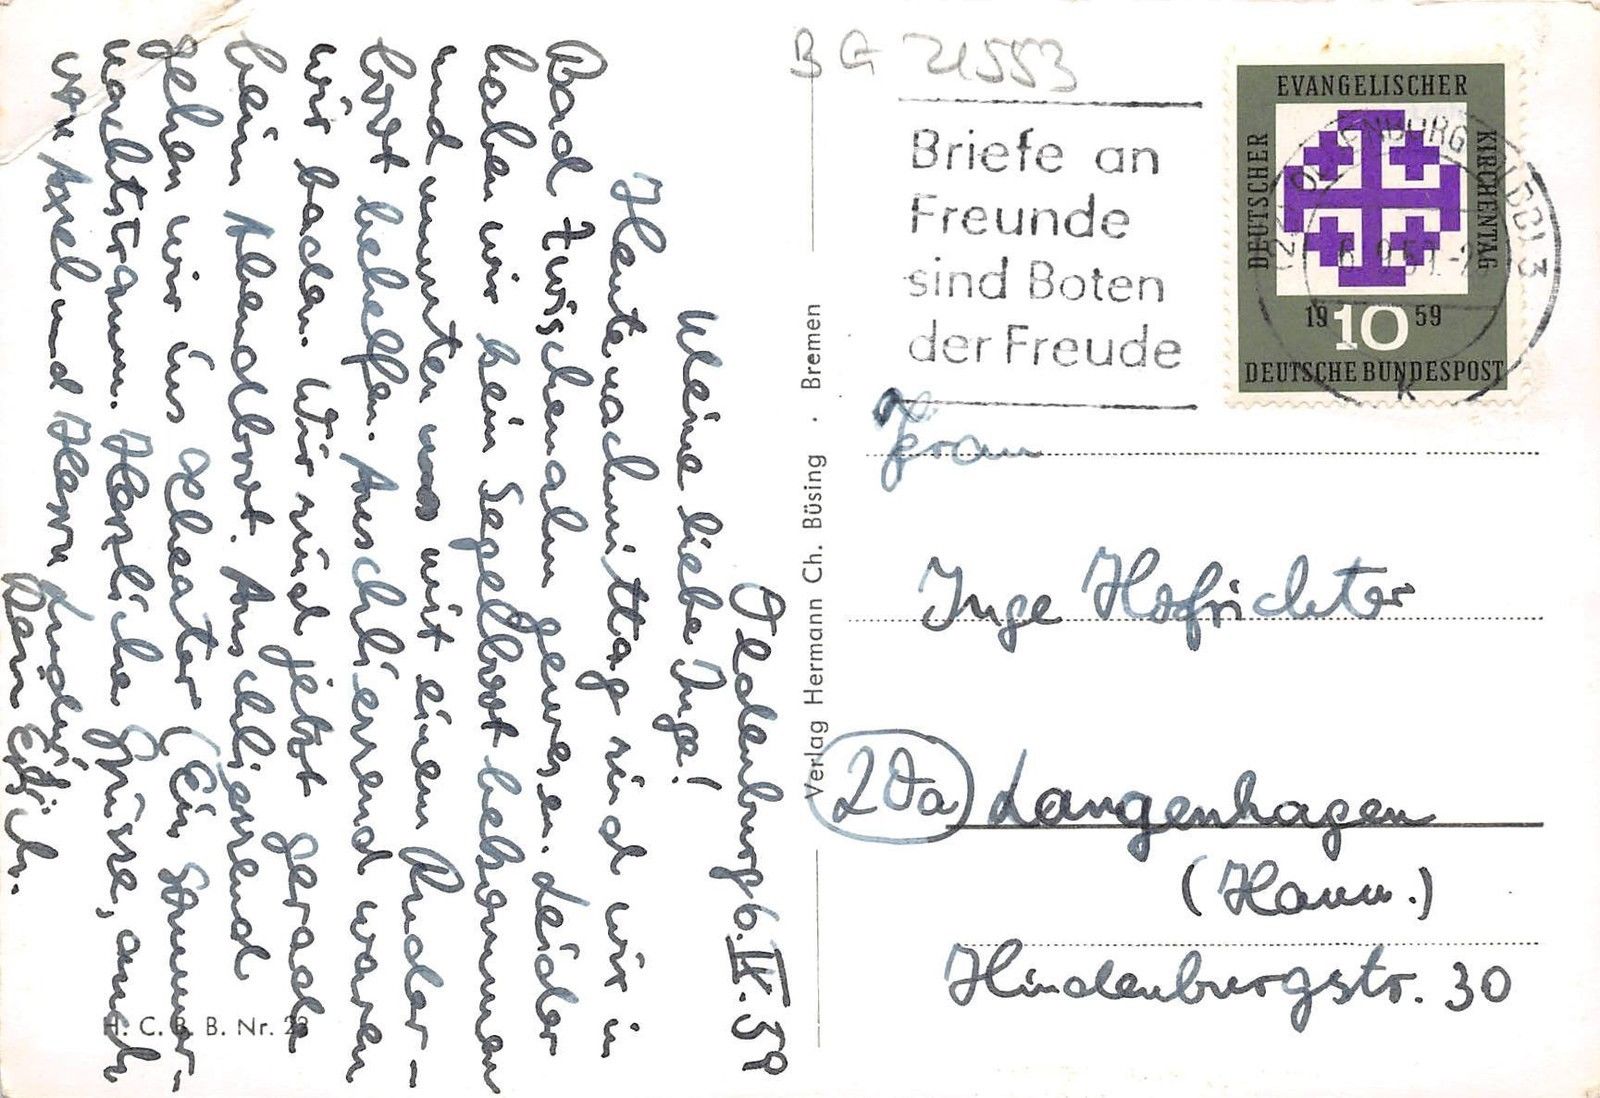 Oldenburg 6. IX. 59
Meine liebe Inge!
Heute nachmittag sind wir in
Bad Zwischenahn gewesen. Leider
haben wir kein Segelboot bekommen
und mussten uns mit einem Ruder-
boot behelfen. Anschliessend waren
wir baden. Wir sind jetzt gerade
beim Abendbrot. Anschliessend
gehen wir ins Theater (Ein Sommer-
nachtstraum. Herzliche Grüsse, auch
von Axel und Herrn
Dein
H. C. B. B. Nr. 23
Verlag Hermann Ch. Büsing · Bremen
BG 21553
Briefe an
Freunde
sind Boten
der Freude
EVANGELISCHER
DEUTSCHER
KIRCHENTAG
1959
10
DEUTSCHE BUNDESPOST
OLDENBURG (OLDB) 3
Frau
Inge Hofrichter
(20a) Langenhagen
(Hann.)
Hindenburgstr. 30